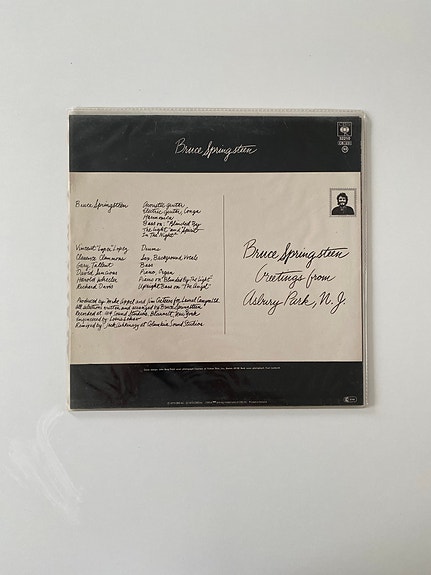 Bruce Springsteen
CBS
32210
Bruce Springsteen Acoustic Guitar
Electric Guitar, Conga
Harmonica
Bass on: "Blinded By
The Light" and "Spirit
In The Night"
Vincent "Loper" Lopez Drums
Clarence Clemmons Sax, Background Vocals
Gary Tallent Bass
David Sancious Piano, Organ
Harold Wheeler Piano on "Blinded By The Light"
Richard Davis Upright Bass on "The Angel"
Produced by Mike Appel and Jim Cretecos for Laurel Canyon Ltd.
All selections written and arranged by Bruce Springsteen
Recorded at 914 Sound Studios, Blauvelt, New York
Engineered by Louis Lahav
Remixed by Jack Ashkinazy at Columbia Sound Studios
Bruce Springsteen
Greetings from
Asbury Park, N. J.